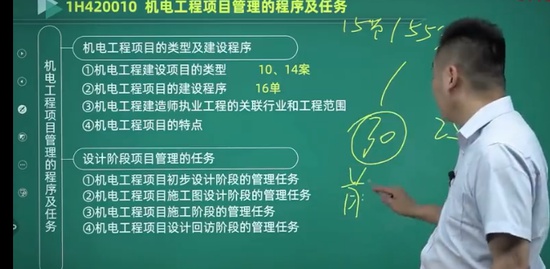 1H420010 机电工程项目管理的程序及任务
机电工程项目管理的程序及任务
机电工程项目的类型及建设程序
①机电工程建设项目的类型 10、14案
②机电工程项目的建设程序 16单
③机电工程建造师执业工程的关联行业和工程范围
④机电工程项目的特点
设计阶段项目管理的任务
①机电工程项目初步设计阶段的管理任务
②机电工程项目施工图设计阶段的管理任务
③机电工程项目施工阶段的管理任务
④机电工程项目设计回访阶段的管理任务
30